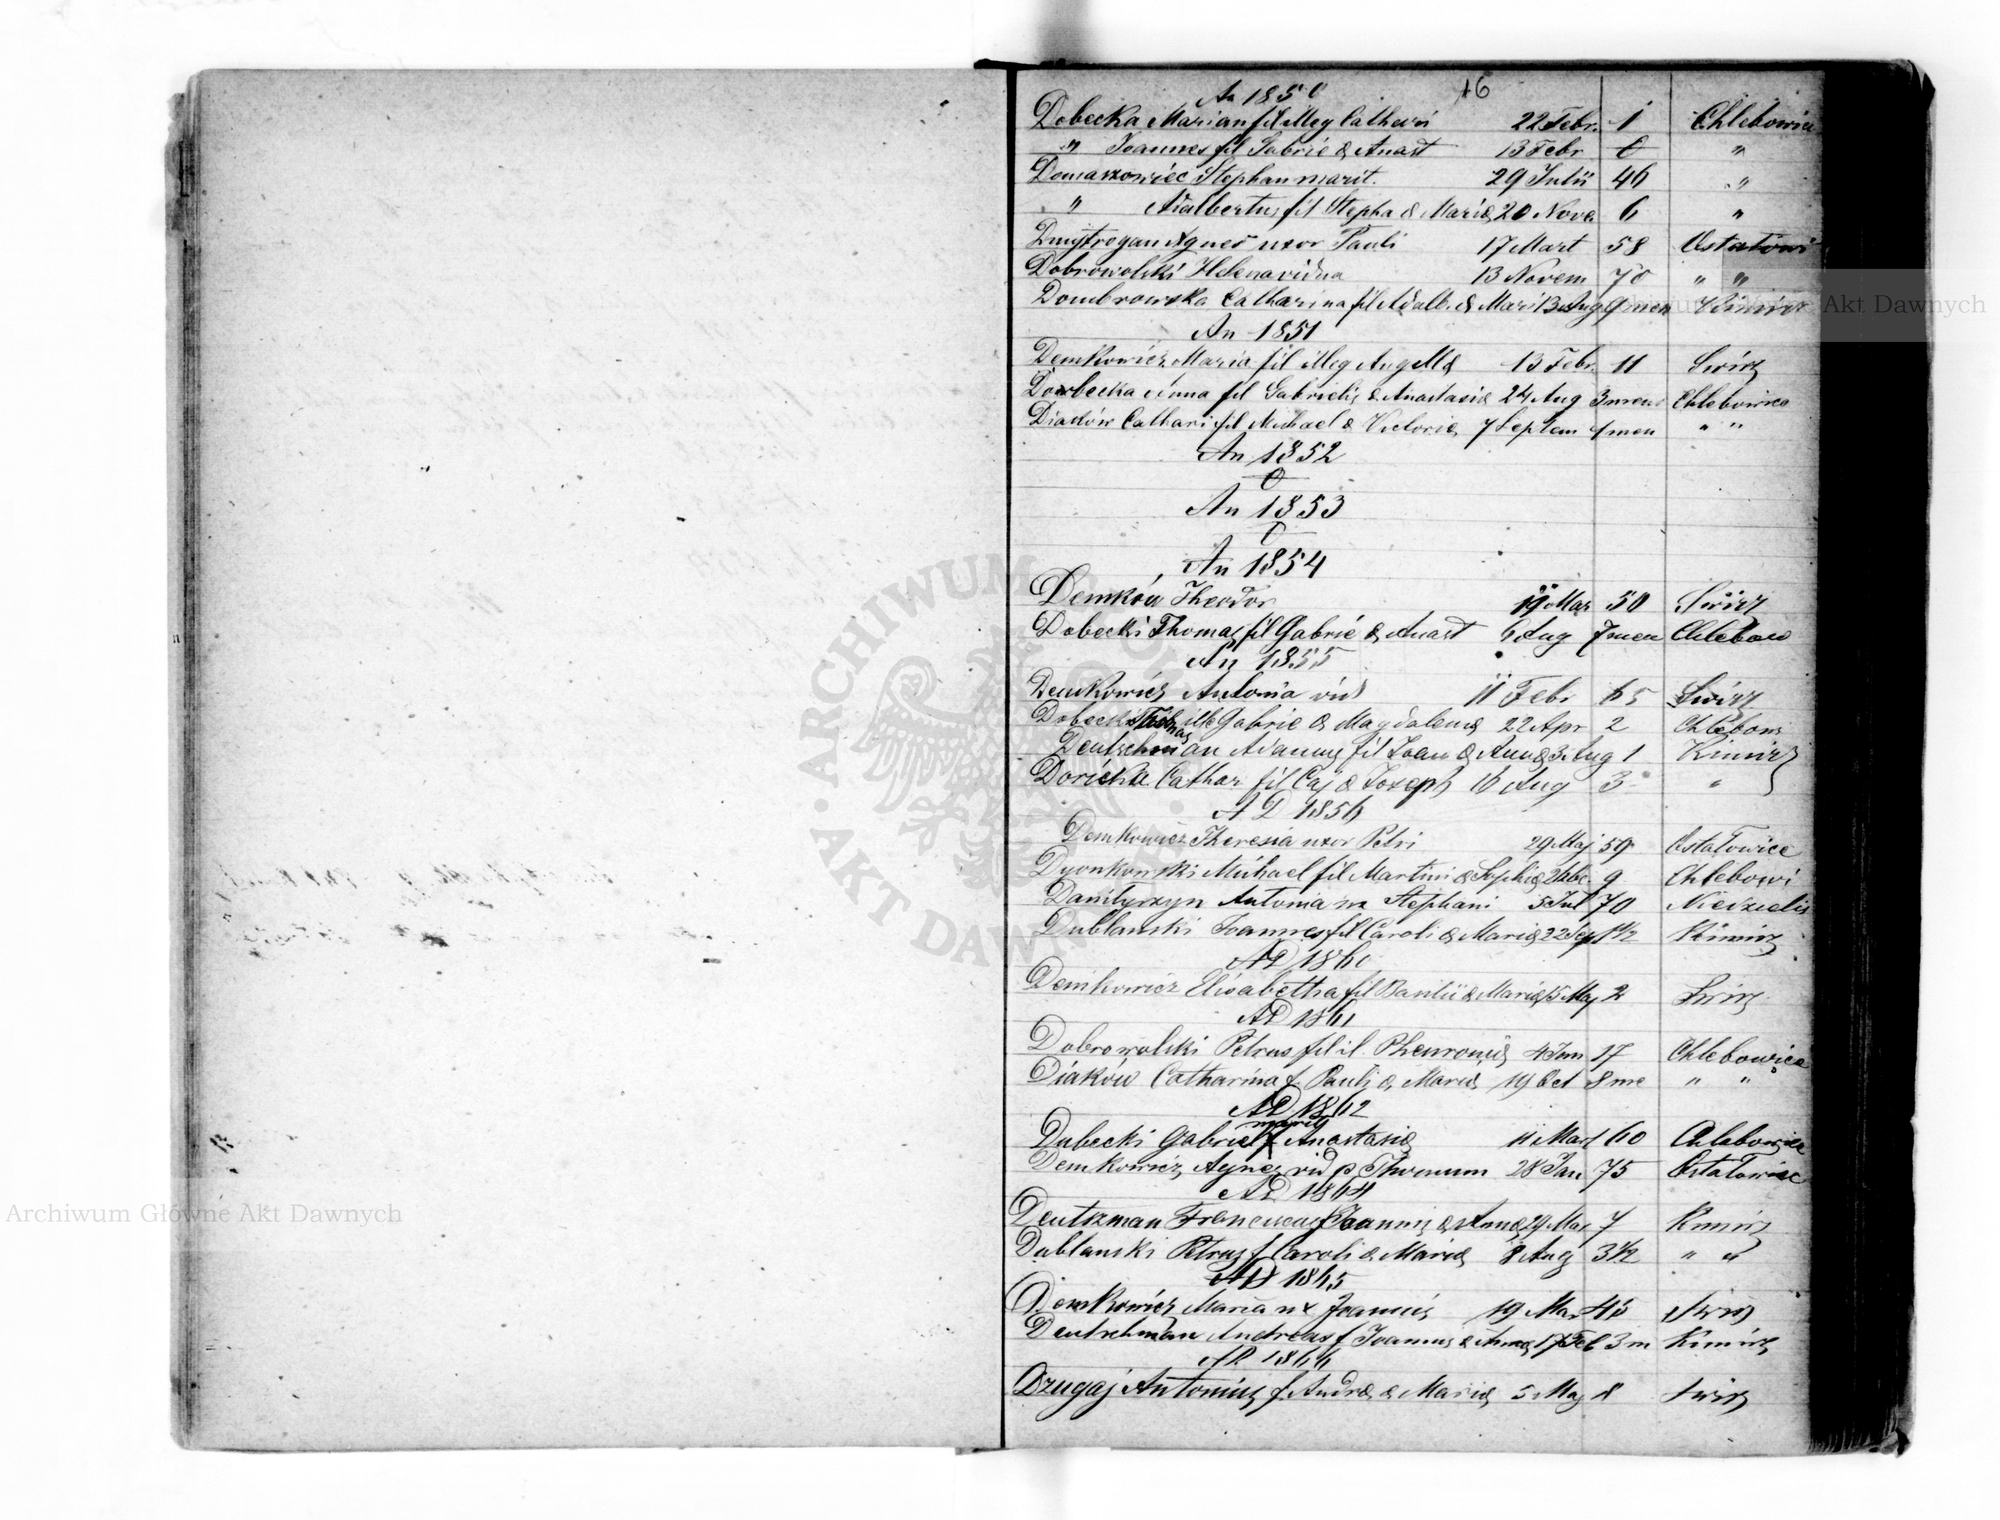 16
An 1850
Dobecka Marian fil illeg Catheri 22 Febr. 1 Chlebowice
" Joannes fil Gabrie & Anast 13 Febr 6 "
Domaszowiec Stephan marit. 29 Julii 46 "
" Adalbertus fil Stepha & Mariæ 20 Nove 6 "
Dmytrogan Agnes uxor Pauli 17 Mart 58 Ostałowi
Dobrowolski Helena vidua 13 Novem 70 " "
Dombrowska Catharina fil Adalb. & Mari 13 Aug 9 men Kimirz
An 1851
Demkowicz Maria fil illeg 13 Febr. 11 Swirz
Dowbecka Anna fil Gabrielis & Anastasiæ 24 Aug 3 mens Chlebowice
Diaków Cathari fil Michael & Victoriæ 7 Septem 1 men " "
An 1852
0
An 1853
0
An 1854
Demków Theodor 19 Mar 50 Swirz
Dobecki Thomas fil Gabrie & Anast 6 Aug 7 men Chlebow
An 1855
Demkowicz Antonia vid 11 Febr 65 Swirz
Dobecki Thomas Gabrie & Magdalenæ 22 Apr 2 Chlebowi
Deutschman Adamus fil Joan & Annæ 3 Aug 1 Kimirz
Doricka Cathar fil Caj & Joseph 16 Aug 3 "
AD 1856
Demkowicz Theresia uxor Petri 29 Maj 59 Ostałowice
Dyonkowski Michael fil Martini & Sophiæ 9 Chlebowi
Daniłyszyn Antonia ux Stephani 5 Jul 70 Niedzielis
Dublanski Joannes fil Caroli & Mariæ 22 Sep 1½ Kimirz
AD 1860
Demkowicz Elisabetha fil Basilii & Mariæ 15 Maj 2 Swirz
AD 1861
Dobrowolski Petrus fil il. Phewroniæ 4 Jun 17 Chlebowice
Diaków Catharina f. Pauli & Mariæ 19 Oct 8 me " "
AD 1862
marit
Dubecki Gabriel Anastasiæ 11 Mart 60 Chlebowice
Demkowicz Agnes vid p. Thomam 28 Jan 75 Ostałowice
AD 1864
Deutszman Franciscus f Joannis & Annæ 29 Maj 7 Kimirz
Dublanski Petrus f Caroli & Mariæ 8 Aug 3½ " "
AD 1865
Demkowicz Maria ux Joannis 19 Mar 45 Swirz
Deutschman Andreas f Joannis & Annæ 17 Feb 3 m Kimirz
AD 1866
Dzugaj Antonius f. Andræ & Mariæ 5 Maj 8 Swirz
Archiwum Główne Akt Dawnych
Archiwum Główne Akt Dawnych
ARCHIWUM GŁÓWNE AKT DAWNYCH